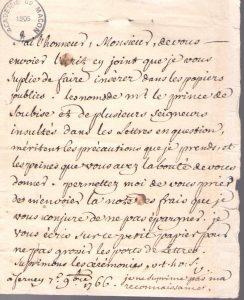 J'ai L'honneur, Monsieur, de vous
envoier L'écrit cy joint que je vous
suplie de faire insérer dans les papiers
publics. Les noms de mr. le prince de
Soubise et de plusieurs Seigneurs
insultés dans les Lettres en question,
méritent les précautions que je prends, et
les peines que vous avez la bonté de vous
donner. permettez moi de vous prier
de m'envoier la note des frais que je
vous conjure de ne pas épargner. je
vous écris sur ce petit papier pour
ne pas grossir les ports de Lettres.
Suprimons les cérémonies, et
à ferney 7e. 9bre je ne suprime pas ma
1766. reconnaissance.